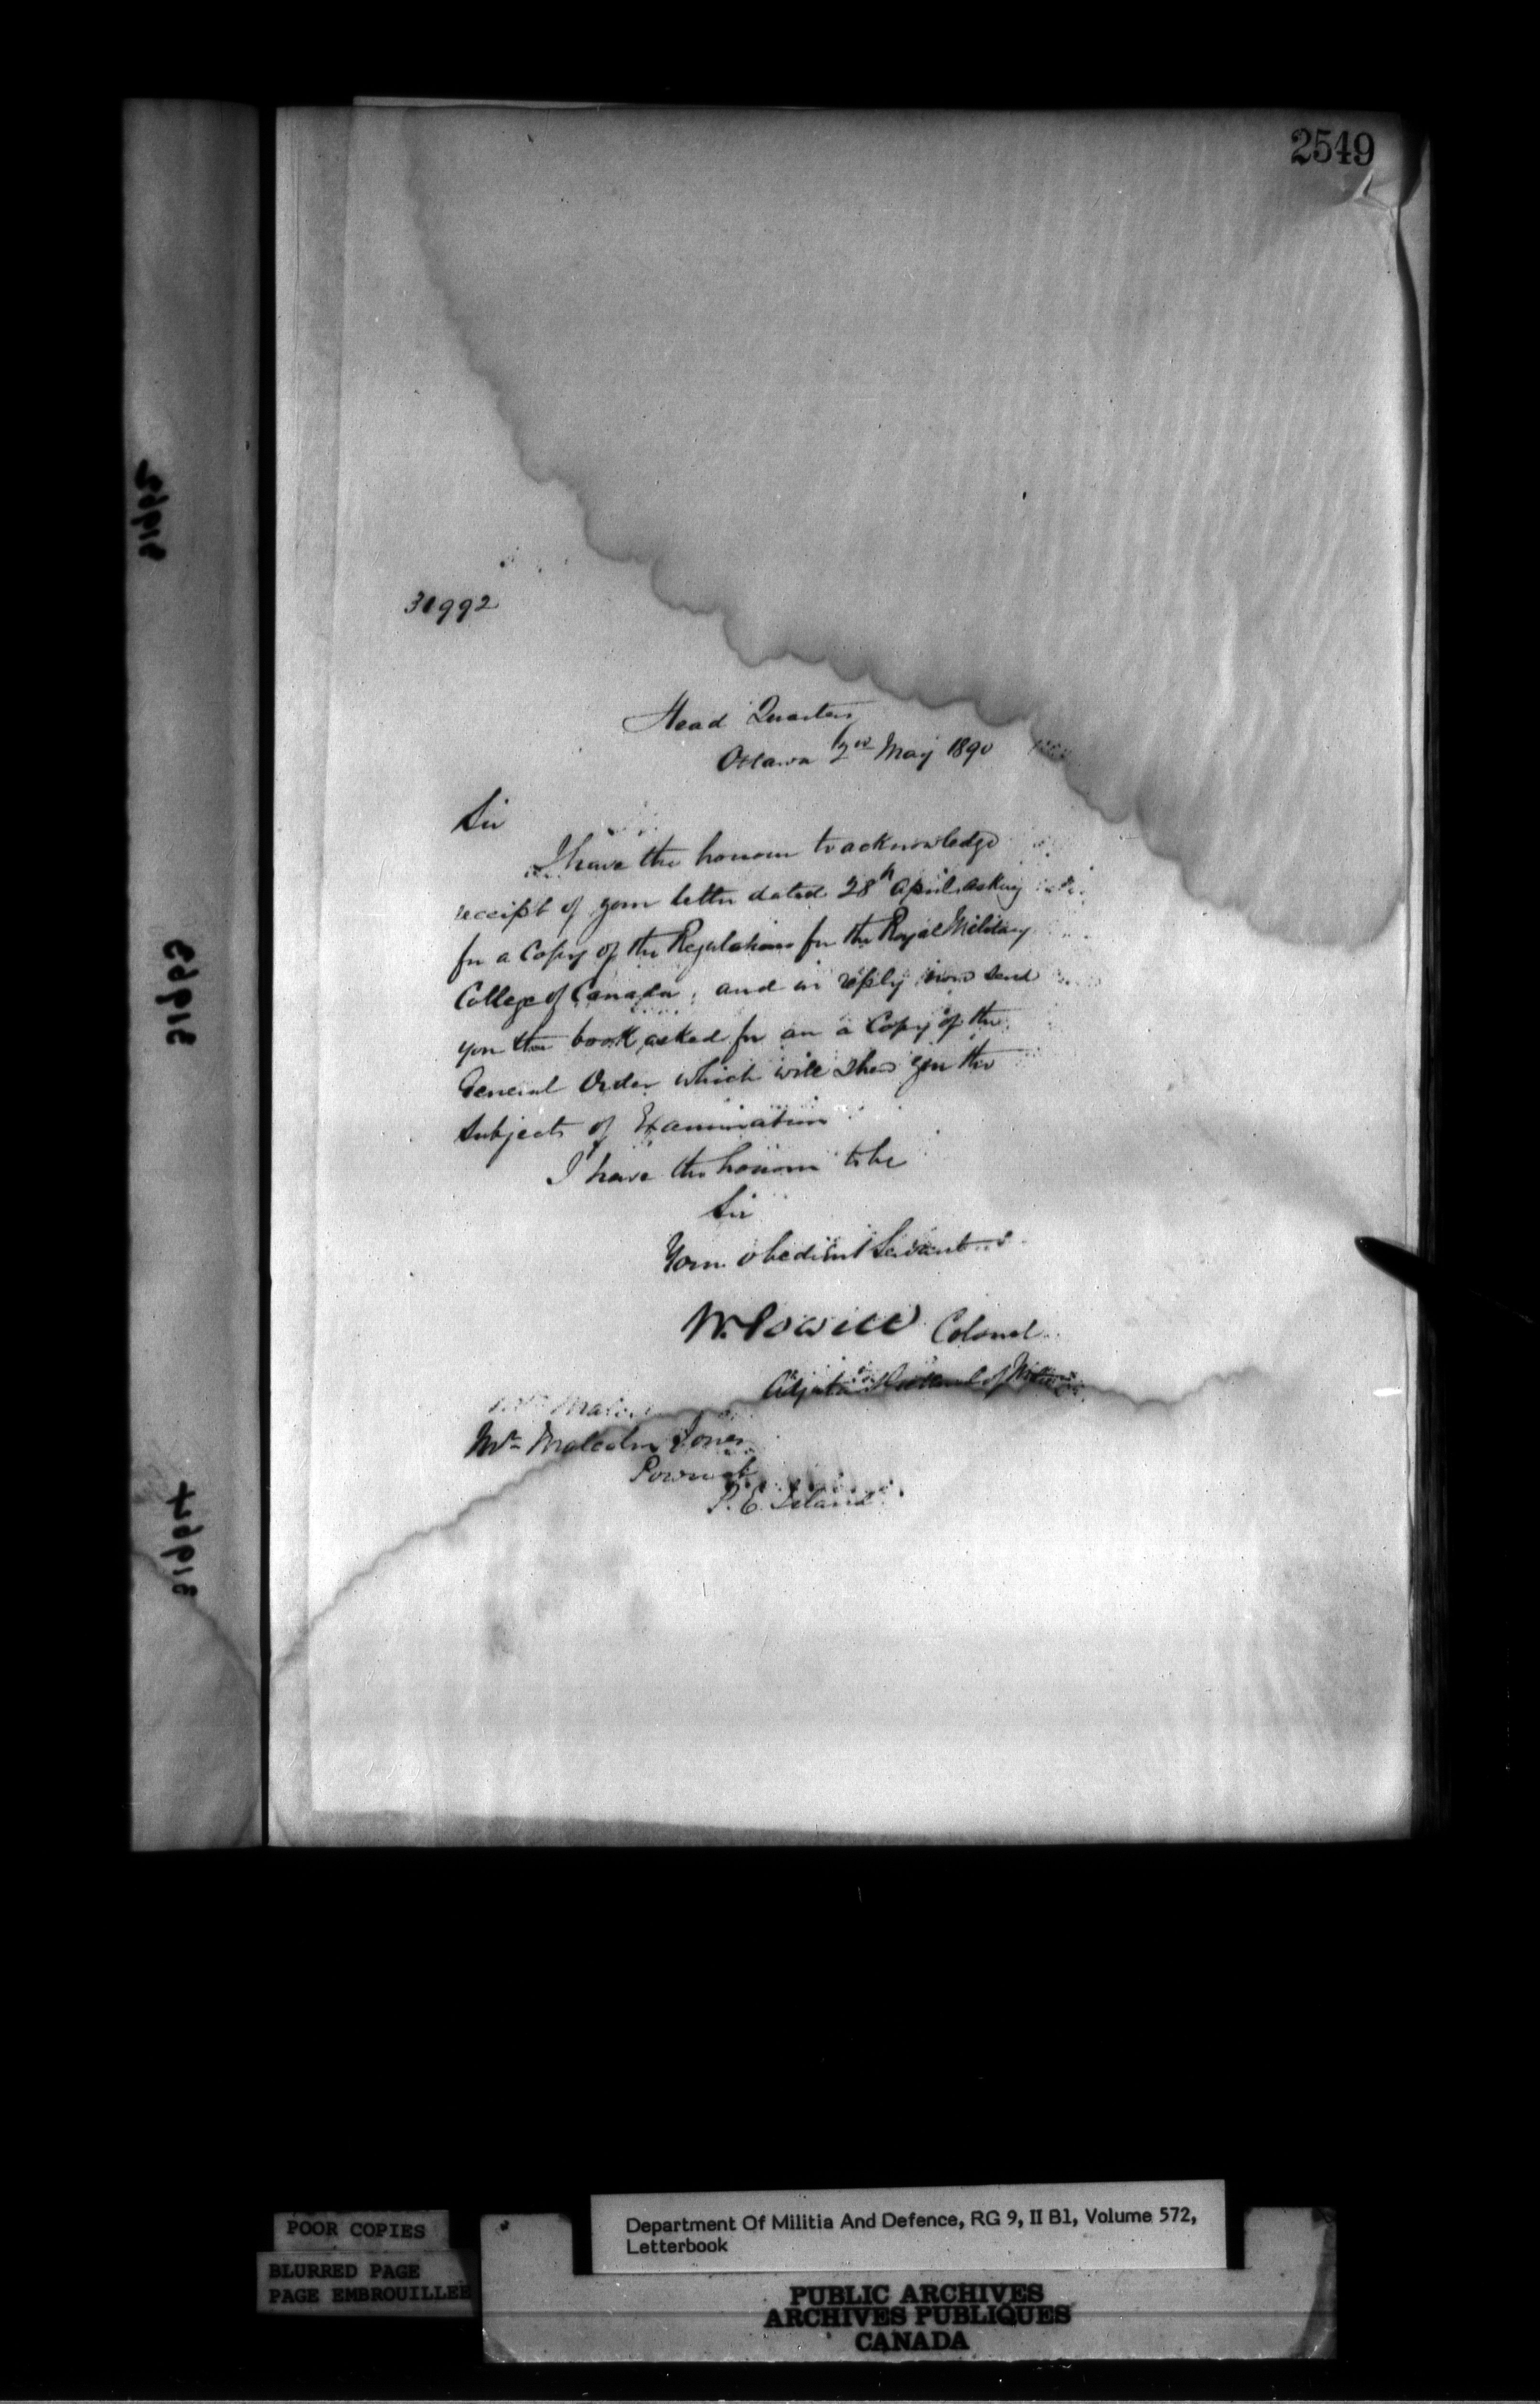 2549
31992
Head Quarters
Ottawa 2nd May 1890
Sir
I have the honour to acknowledge
receipt of your letter dated 28th April asking
for a Copy of the Regulations for the Royal Military
College of Canada, and in reply now send
you the book asked for an a Copy of the
General Order which will shew you the
Subjects of Examination
I have the honour to be
Sir
Your obedient Servant
W. Powell Colonel
Adjutant General of Militia
Mr Malcolm Jones
P. E. Island
31992
31993
31994
POOR COPIES
BLURRED PAGE
PAGE EMBROUILLEE
Department Of Militia And Defence, RG 9, II B1, Volume 572,
Letterbook
PUBLIC ARCHIVES
ARCHIVES PUBLIQUES
CANADA